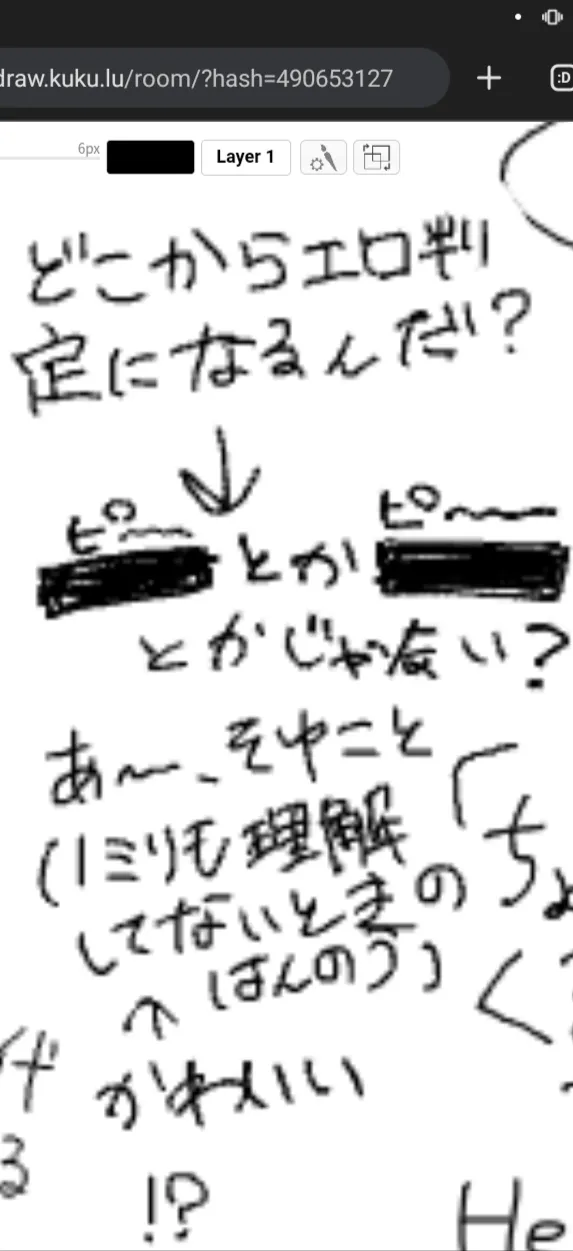 draw.kuku.lu/room/?hash=490653127
:D
6px
Layer 1
どこからエロ判
定になるんだ?
ピ〜 ピ〜
とか
とかじゃない?
あ〜、そゆこと
(1ミリも理解
してないときの
はんのう)
かわいい
!?
「ち
く
る
He